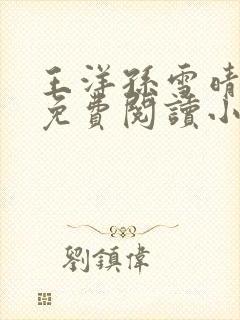 王洋孫雪晴
免費閱讀小
劉鎮偉